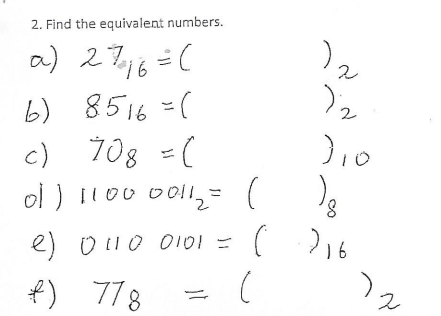 2. Find the equivalent numbers.
a) 27₁₆ = ( )₂
b) 85₁₆ = ( )₂
c) 70₈ = ( )₁₀
d) 1100 0011₂ = ( )₈
e) 0110 0101 = ( )₁₆
f) 77₈ = ( )₂